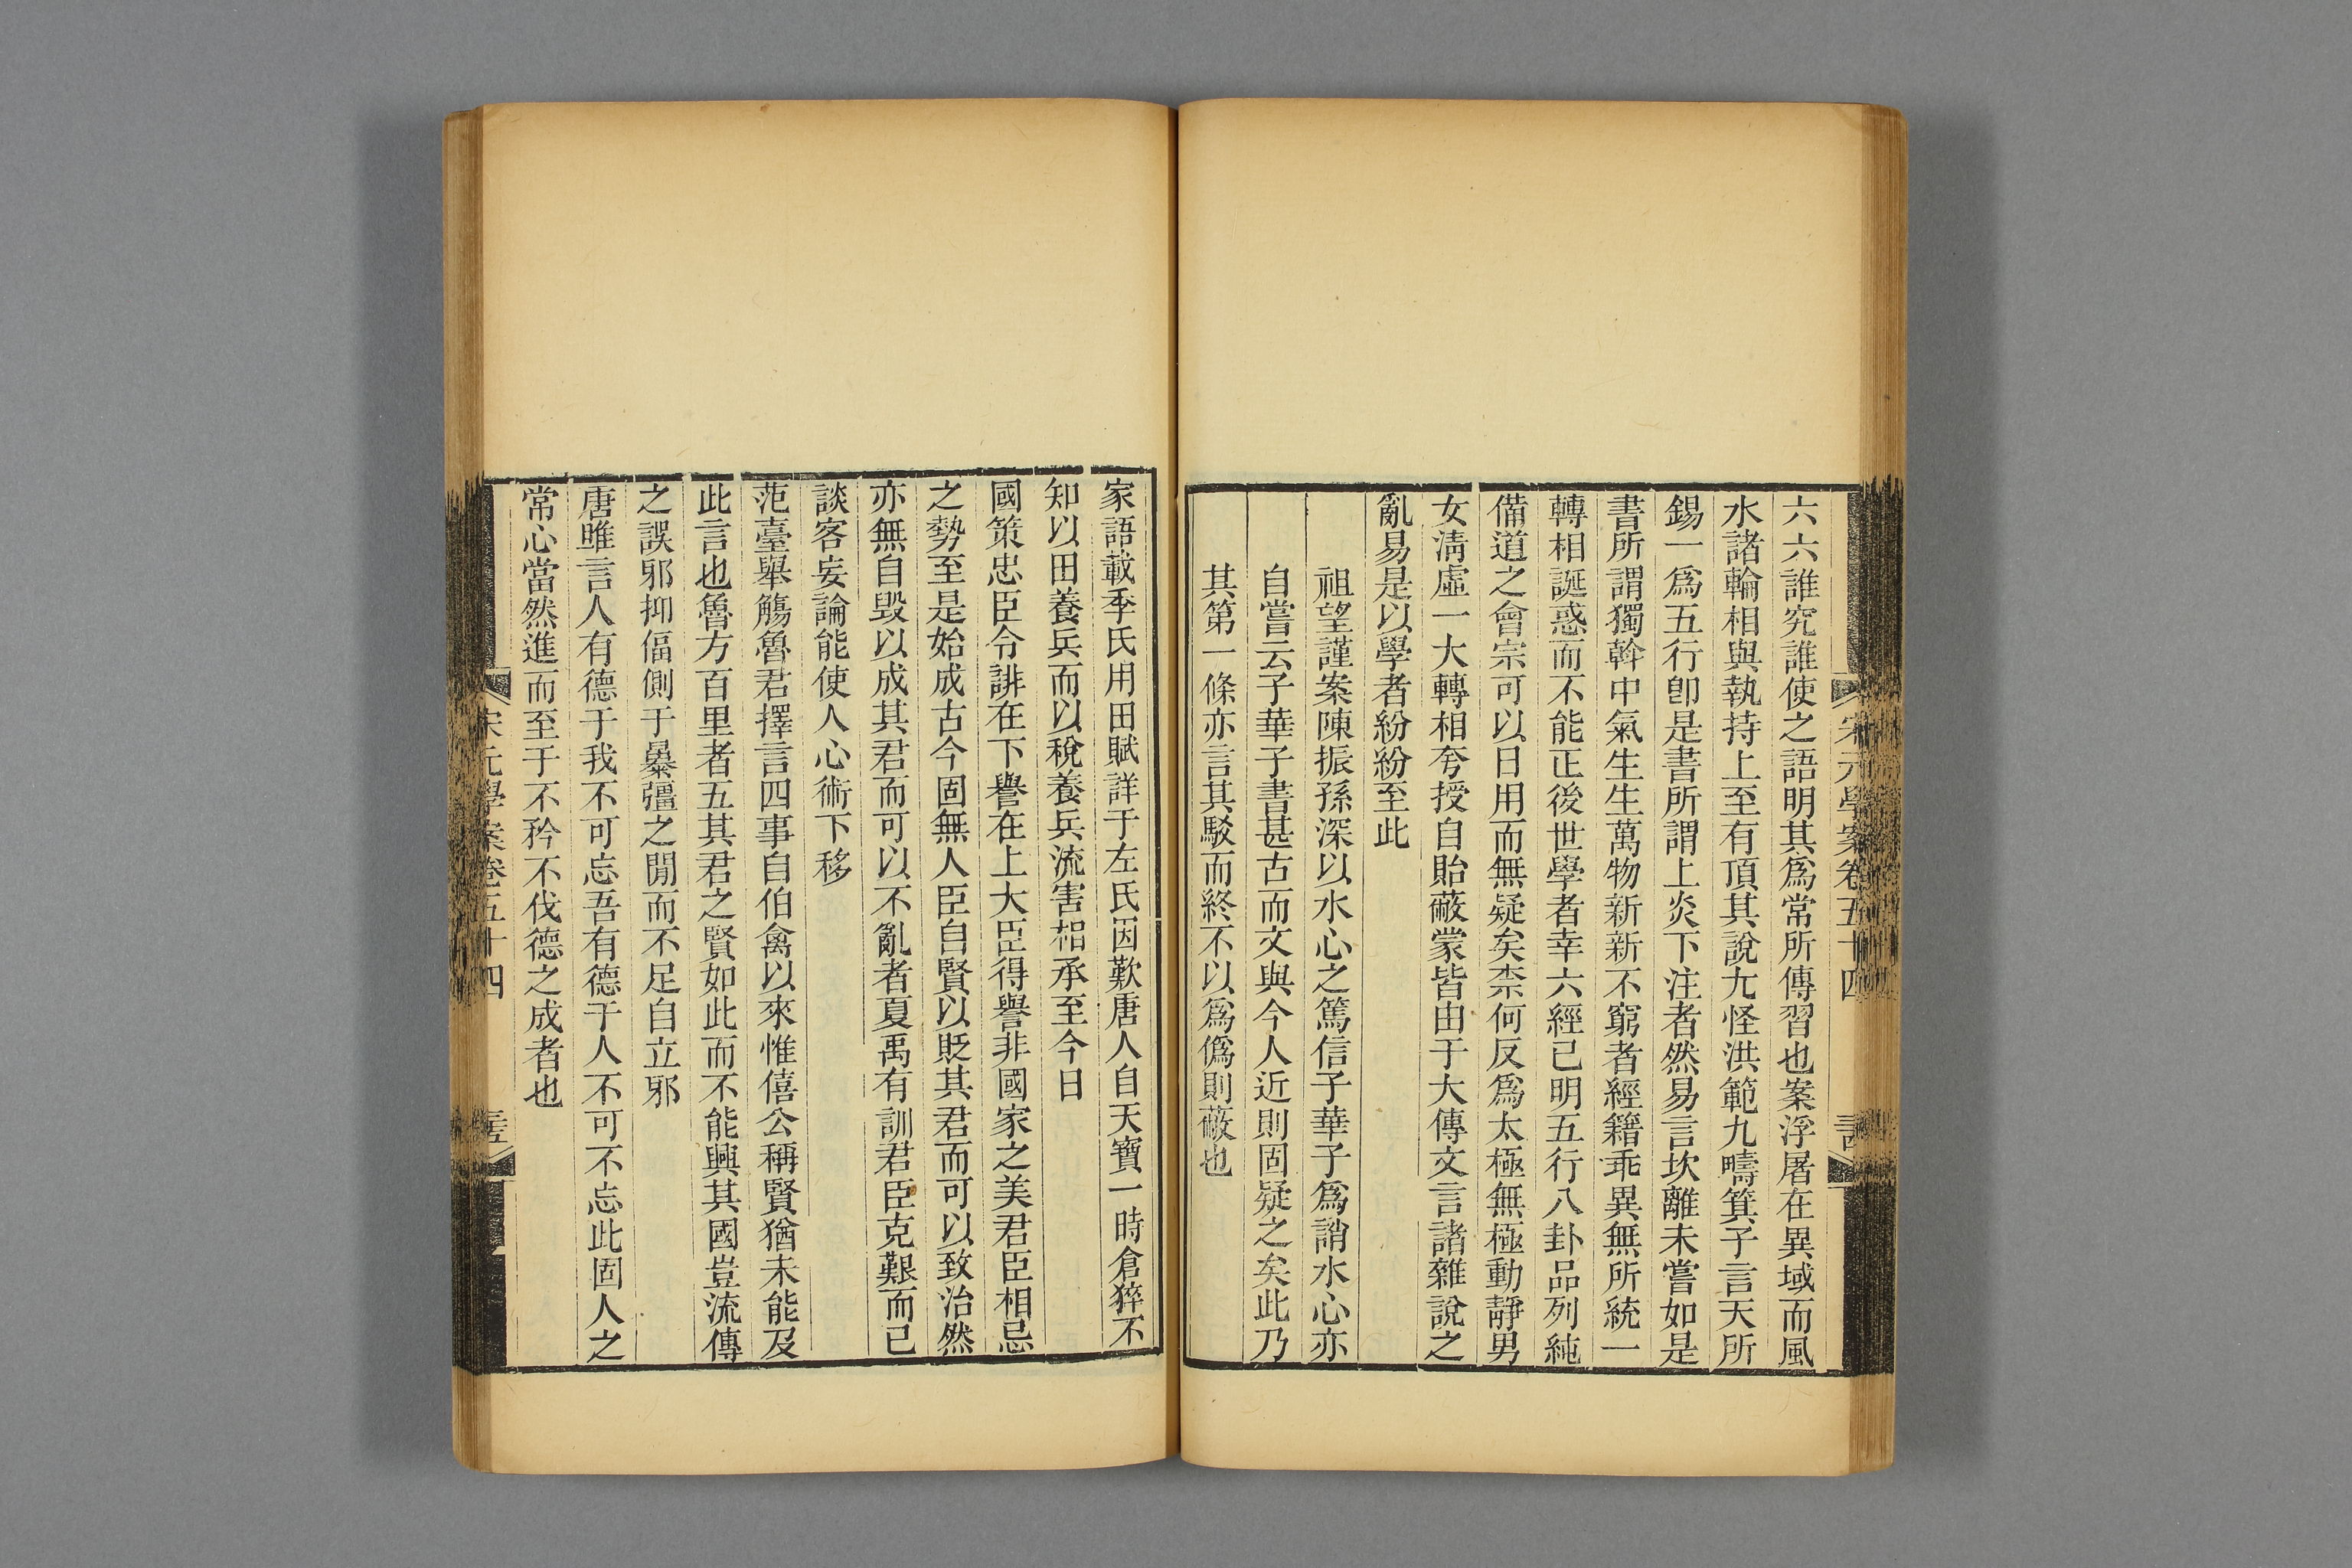 宋元學案卷五十四
六六誰究誰使之語明其爲常所傳習也案浮屠在異域而風
水諸輪相與執持上至有頂其說尢怪洪範九疇箕子言天所
錫一爲五行卽是書所謂上炎下注者然易言坎離未嘗如是
書所謂獨斡中氣生生萬物新新不窮者經籍乖異無所統一
轉相誕惑而不能正後世學者幸六經已明五行八卦品列純
備道之會宗可以日用而無疑矣柰何反爲太極無極動靜男
女淸虛一大轉相夸授自貽蔽蒙皆由于大傳文言諸雜說之
亂易是以學者紛紛至此
祖望謹案陳振孫深以水心之篤信子華子爲誚水心亦
自嘗云子華子書甚古而文與今人近則固疑之矣此乃
其第一條亦言其駁而終不以爲僞則蔽也
家語載季氏用田賦詳于左氏因歎唐人自天寶一時倉猝不
知以田養兵而以稅養兵流害相承至今日
國策忠臣令誹在下譽在上大臣得譽非國家之美君臣相忌
之勢至是始成古今固無人臣自賢以貶其君而可以致治然
亦無自毀以成其君而可以不亂者夏禹有訓君臣克艱而已
談客妄論能使人心術下移
范臺舉觴魯君擇言四事自伯禽以來惟僖公稱賢猶未能及
此言也魯方百里者五其君之賢如此而不能興其國豈流傳
之誤邪抑偪側于暴彊之閒而不足自立邪
唐雎言人有德于我不可忘吾有德于人不可不忘此固人之
常心當然進而至于不矜不伐德之成者也
宋元學案卷五十四